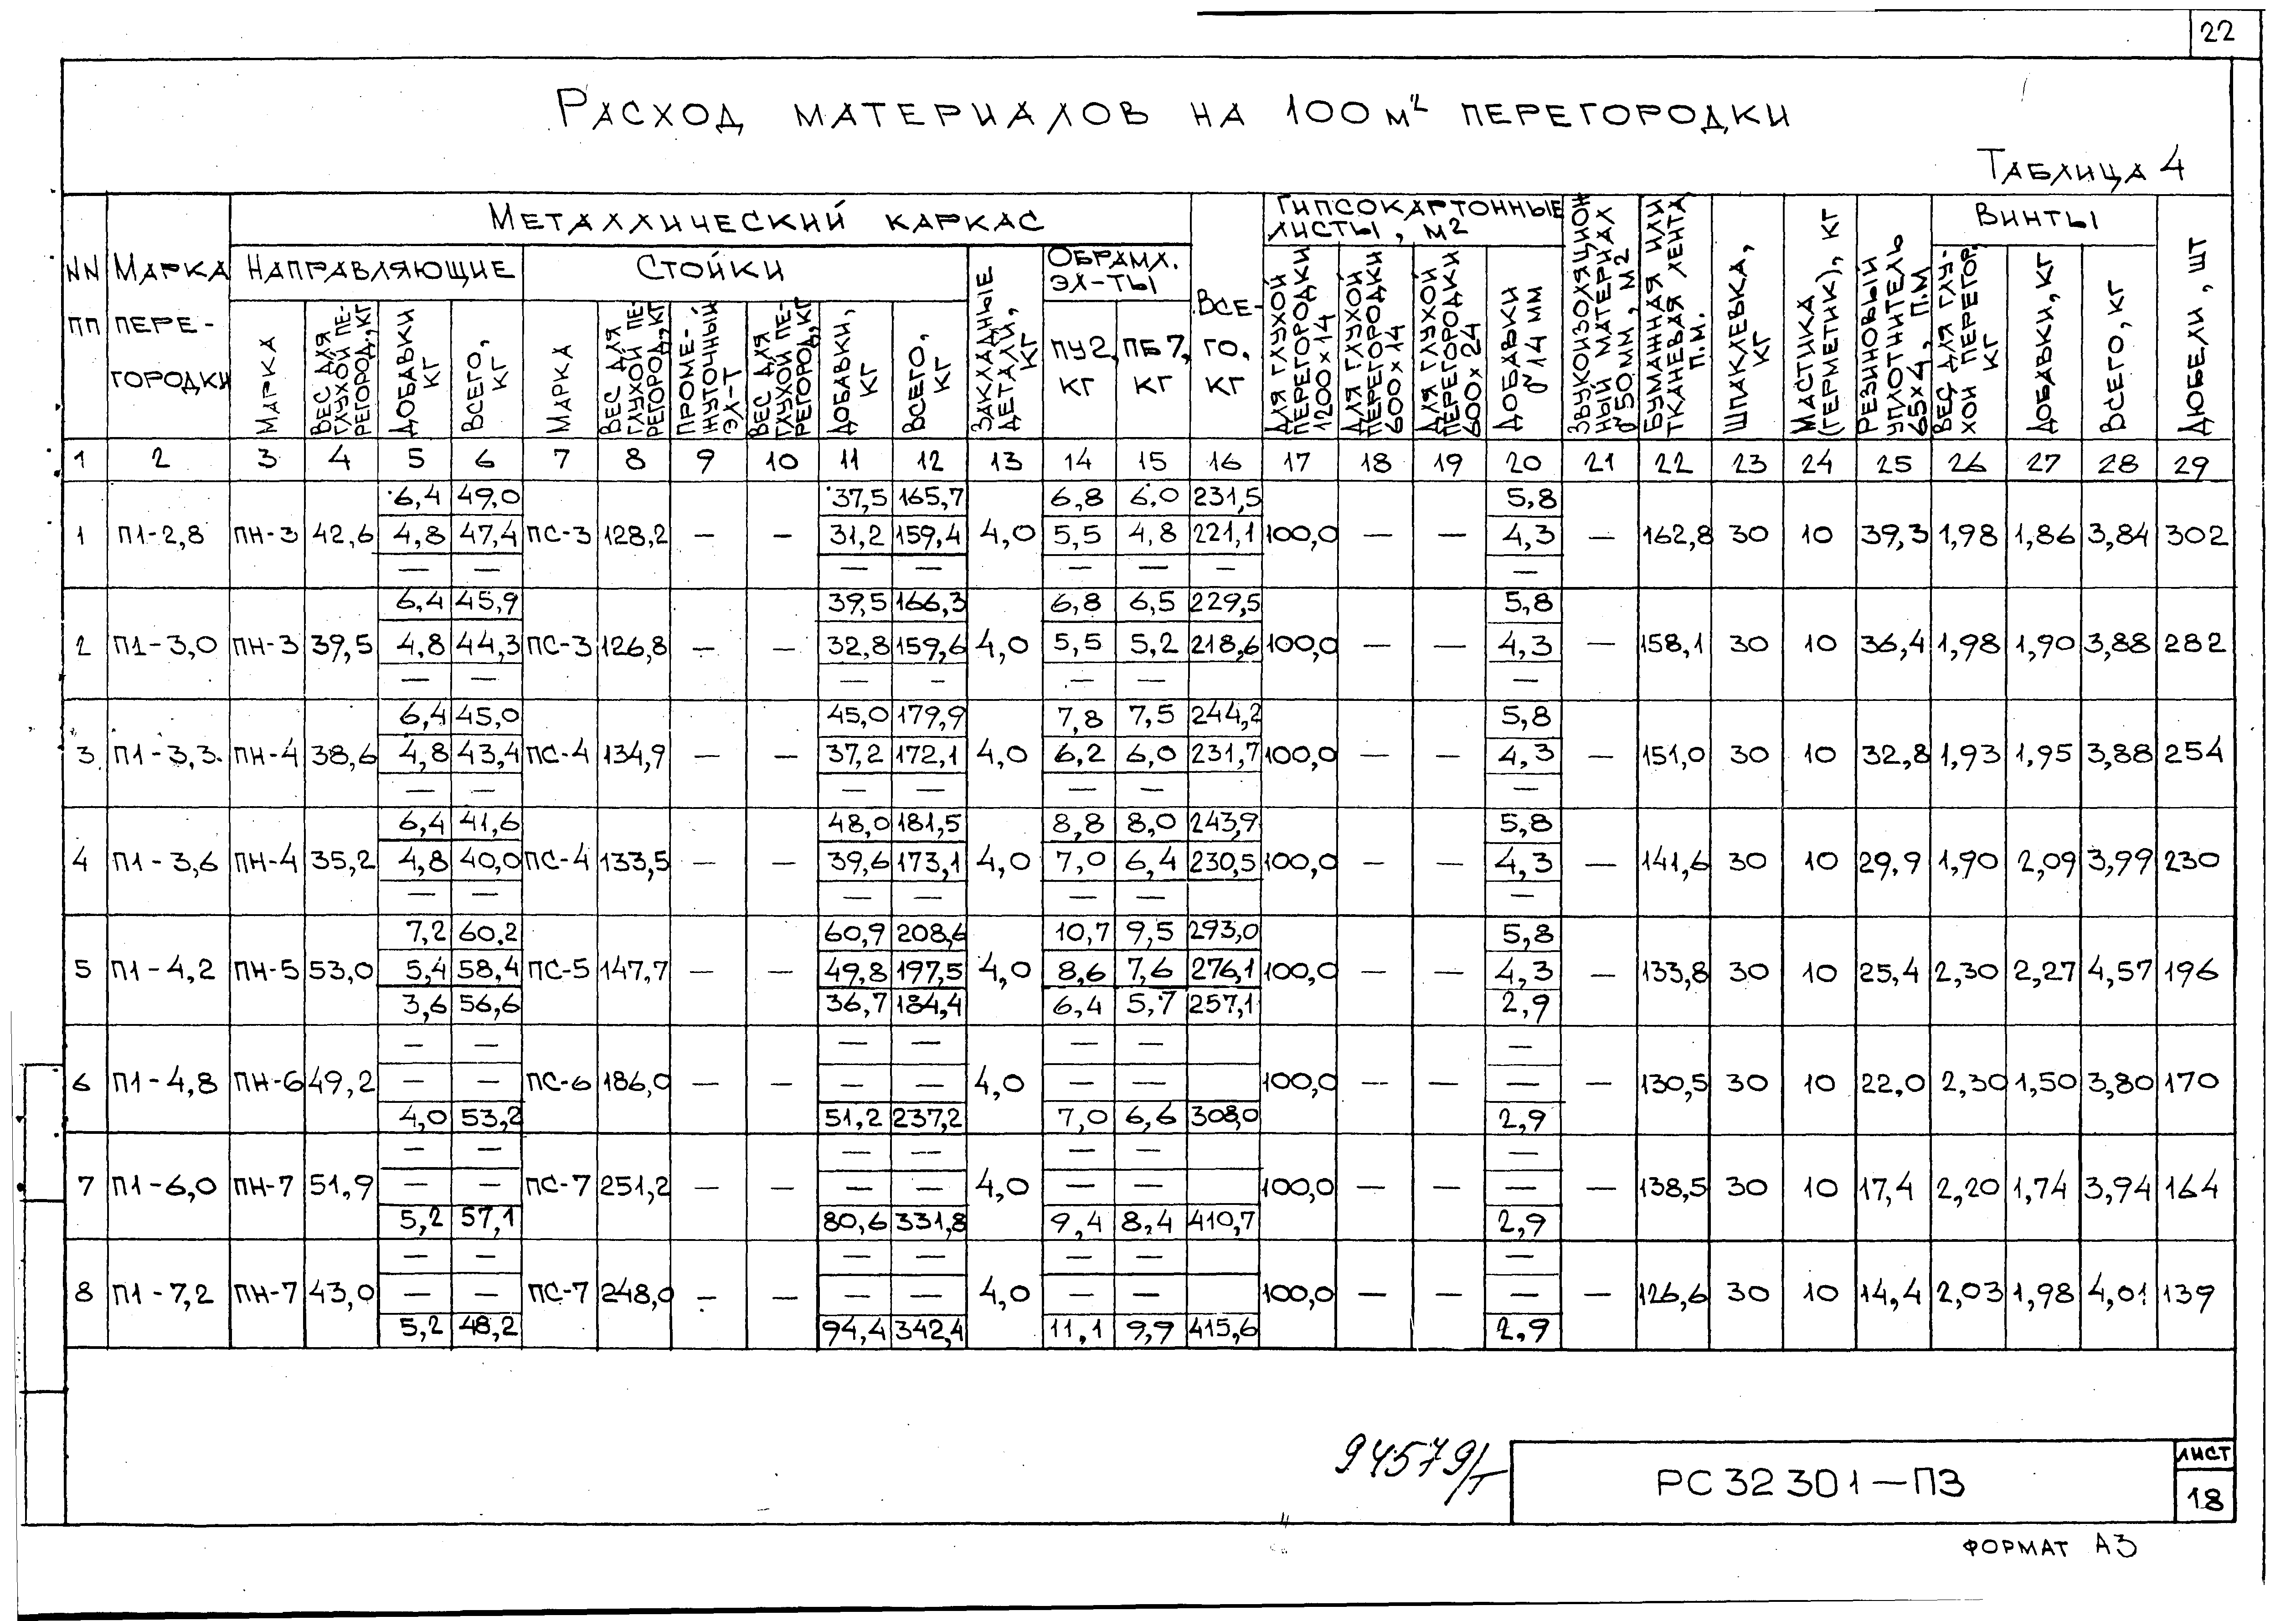 22
Расход материалов на 100 м² перегородки
Таблица 4
NN пп
Марка перегородки
Металлический каркас
Направляющие
Марка
Вес для глухой перегород., кг
Добавки кг
Всего, кг
Стойки
Марка
Вес для глухой перегород., кг
Промежуточный эл-т
Вес для глухой перегород, кг
Добавки, кг
Всего, кг
Закладные детали, кг
Обрамл. эл-ты
ПУ2, кг
ПБ7, кг
Всего, кг
Гипсокартонные листы, м2
Для глухой перегородки 1200×14
Для глухой перегородки 600×14
Для глухой перегородки 600×24
Добавки δ 14 мм
Звукоизоляционный материал δ 50мм, м2
Бумажная или тканевая лента п.м.
Шпаклевка, кг
Мастика (герметик), кг
Резиновый уплотнитель 65×4, п.м
Винты
Вес для глухой перегор. кг
Добавки, кг
Всего, кг
Дюбели, шт
1 2 3 4 5 6 7 8 9 10 11 12 13 14 15 16 17 18 19 20 21 22 23 24 25 26 27 28 29
6,4 49,0 37,5 165,7 6,8 6,0 231,5 5,8
1 П1-2,8 ПН-3 42,6 4,8 47,4 ПС-3 128,2 — — 31,2 159,4 4,0 5,5 4,8 221,1 100,0 — — 4,3 — 162,8 30 10 39,3 1,98 1,86 3,84 302
— — — — — — — —
6,4 45,9 39,5 166,3 6,8 6,5 229,5 5,8
2 П1-3,0 ПН-3 39,5 4,8 44,3 ПС-3 126,8 — — 32,8 159,6 4,0 5,5 5,2 218,6 100,0 — — 4,3 — 158,1 30 10 36,4 1,98 1,90 3,88 282
— — — — — — —
6,4 45,0 45,0 179,9 7,8 7,5 244,2 5,8
3. П1-3,3. ПН-4 38,6 4,8 43,4 ПС-4 134,9 — — 37,2 172,1 4,0 6,2 6,0 231,7 100,0 — — 4,3 — 151,0 30 10 32,8 1,93 1,95 3,88 254
— — — — — — —
6,4 41,6 48,0 181,5 8,8 8,0 243,9 5,8
4 П1-3,6 ПН-4 35,2 4,8 40,0 ПС-4 133,5 — — 39,6 173,1 4,0 7,0 6,4 230,5 100,0 — — 4,3 — 141,6 30 10 29,9 1,90 2,09 3,99 230
— — — — — — —
7,2 60,2 60,9 208,6 10,7 9,5 293,0 5,8
5 П1-4,2 ПН-5 53,0 5,4 58,4 ПС-5 147,7 — — 49,8 197,5 4,0 8,6 7,6 276,1 100,0 — — 4,3 — 133,8 30 10 25,4 2,30 2,27 4,57 196
3,6 56,6 36,7 184,4 6,4 5,7 257,1 2,9
— — — — — — —
6 П1-4,8 ПН-6 49,2 — — ПС-6 186,0 — — — — 4,0 — — 100,0 — — — — 130,5 30 10 22,0 2,30 1,50 3,80 170
4,0 53,2 51,2 237,2 7,0 6,6 308,0 2,9
— — — — — — —
7 П1-6,0 ПН-7 51,9 — — ПС-7 251,2 — — — — 4,0 — — 100,0 — — — — 138,5 30 10 17,4 2,20 1,74 3,94 164
5,2 57,1 80,6 331,8 9,4 8,4 410,7 2,9
— — — — — — —
8 П1-7,2 ПН-7 43,0 — — ПС-7 248,0 — — — — 4,0 — — 100,0 — — — — 126,6 30 10 14,4 2,03 1,98 4,01 139
5,2 48,2 94,4 342,4 11,1 9,9 415,6 2,9
94579/т
РС 32 301-ПЗ
Лист
18
Формат А3